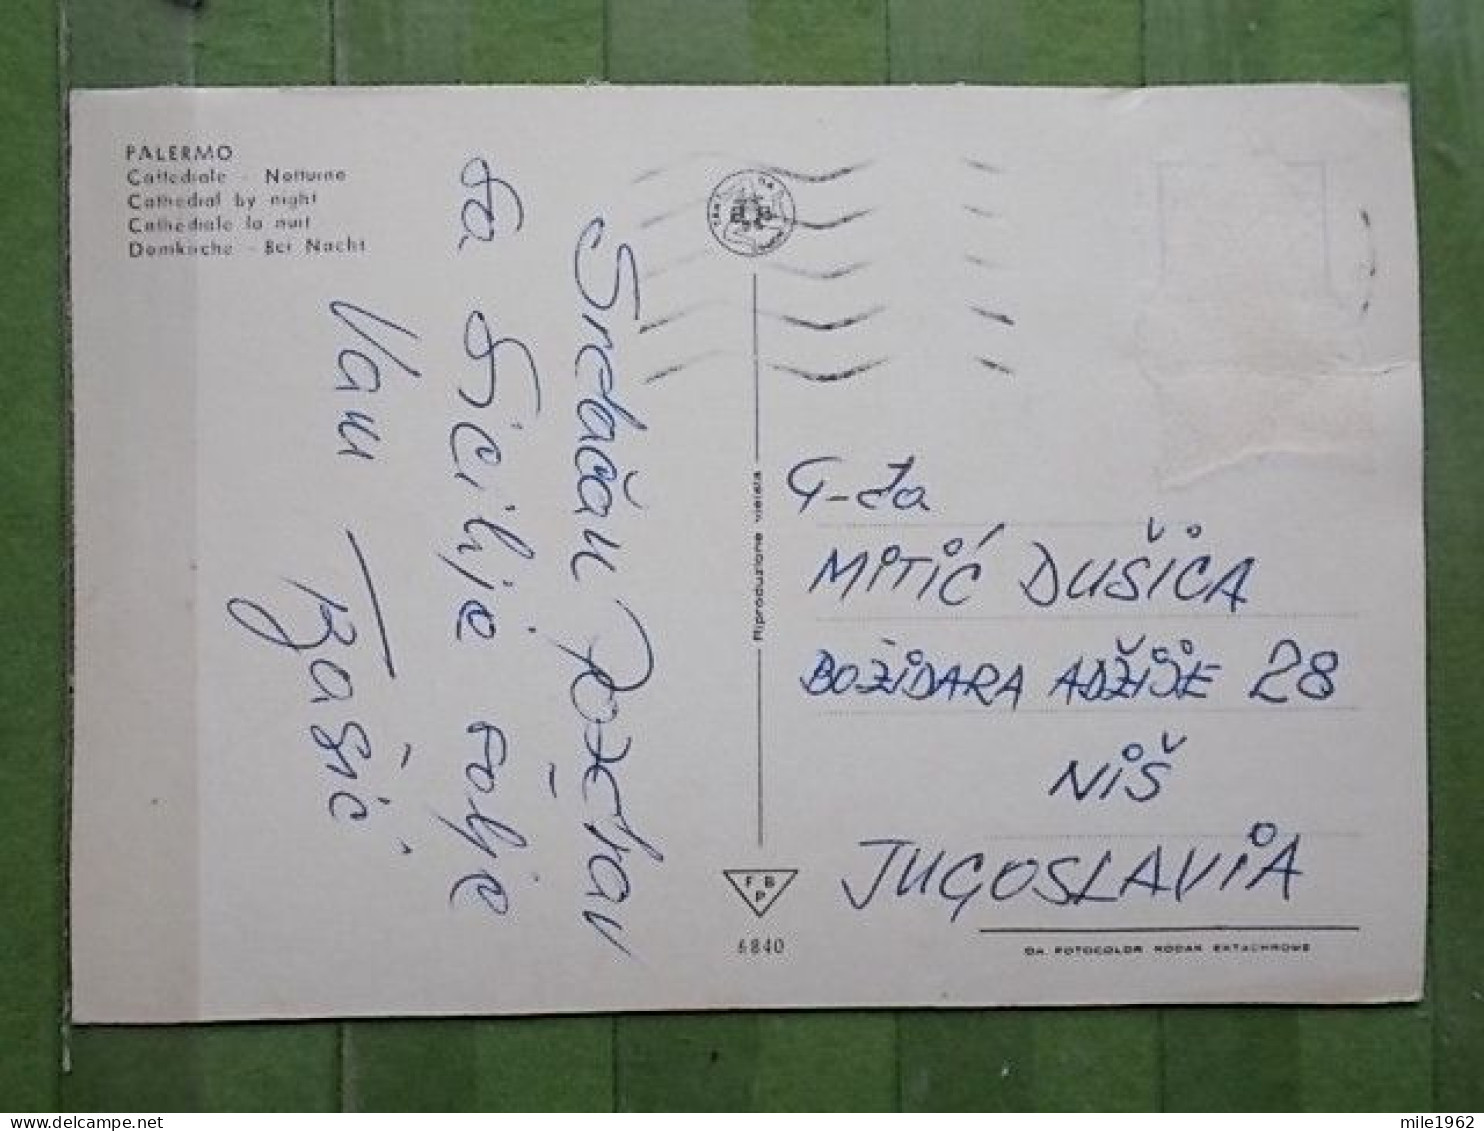 PALERMO
Cattedrale - Notturno
Cathedral by night
Cathédrale la nuit
Domkirche - Bei Nacht
Srdačan Pozdrav
sa Sicilije šalje
Vam Bašić
Riproduzione vietata
G-đa
MITIĆ DUŠICA
BOŽIDARA ADŽIJE 28
NIŠ
JUGOSLAVIA
F B P
6840
DA FOTOCOLOR KODAK EKTACHROME
mile1962